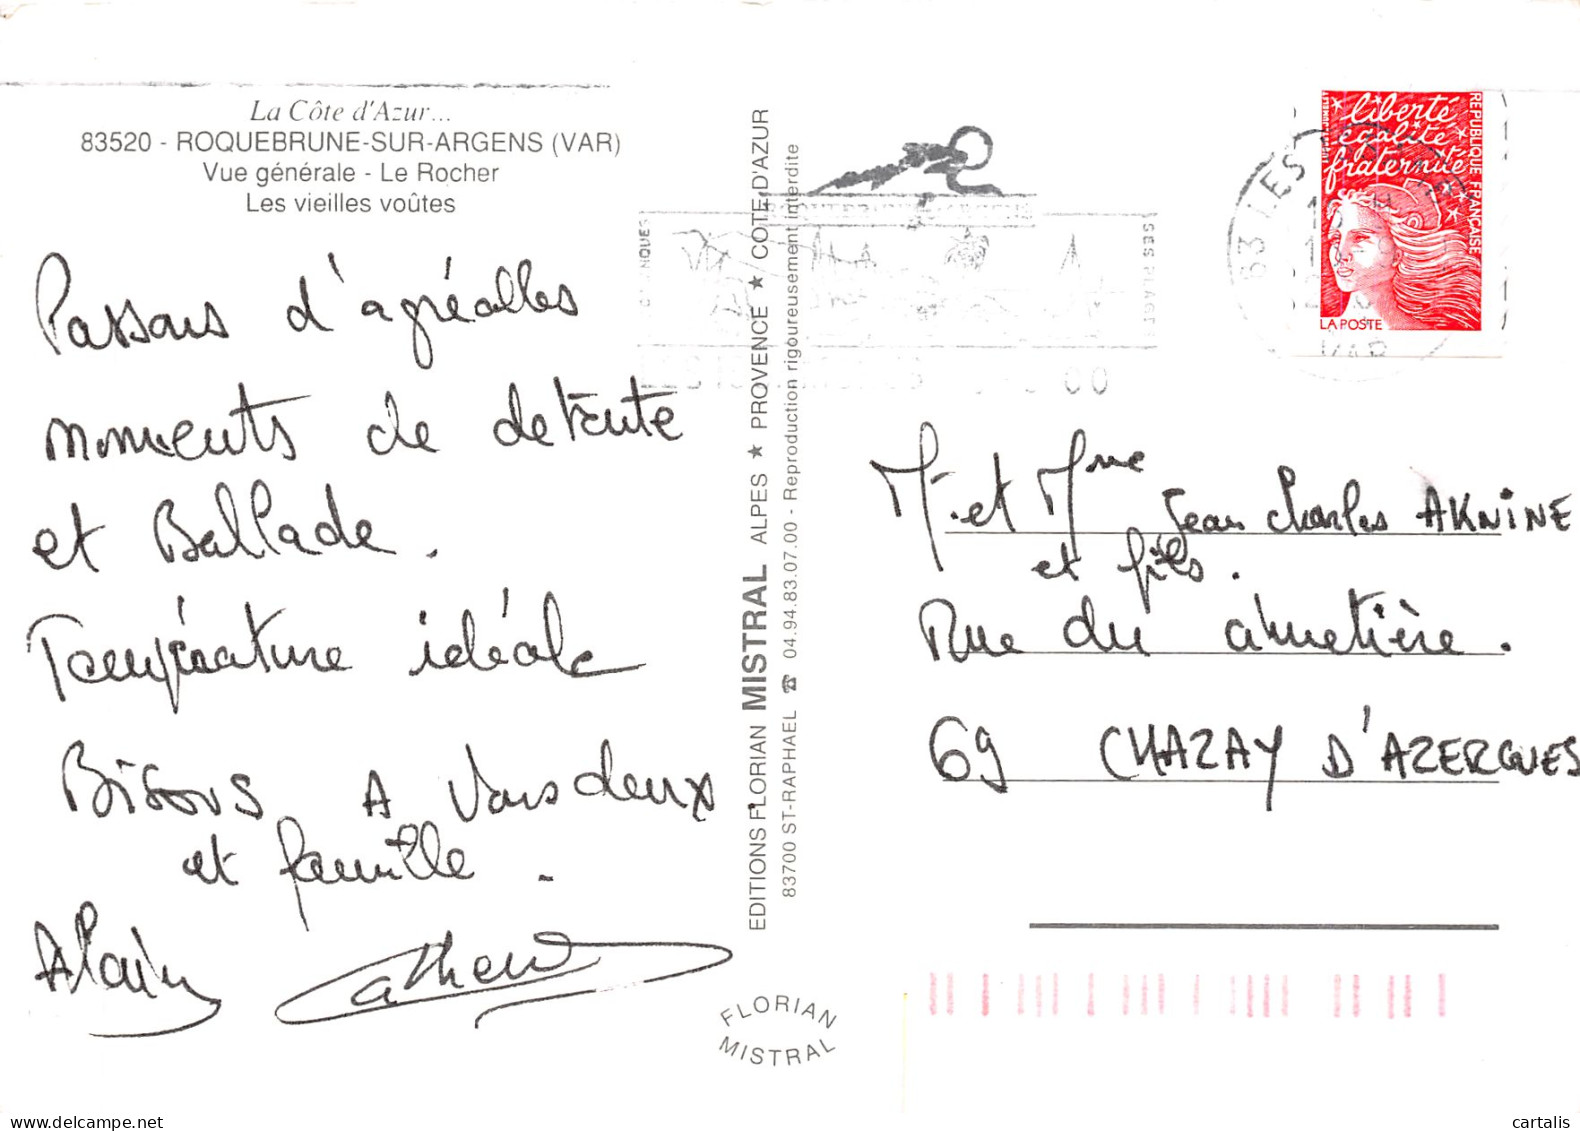 La Côte d'Azur...
83520 - ROQUEBRUNE-SUR-ARGENS (VAR)
Vue générale - Le Rocher
Les vieilles voûtes
Passons d'agréables
moments de detente
et Ballade.
Température idéale
BISOUS A Vous deux
et famille.
Alain
EDITIONS FLORIAN MISTRAL ALPES ★ PROVENCE ★ COTE-D'AZUR
83700 ST-RAPHAEL ☎ 04.94.83.07.00 - Reproduction rigoureusement interdite
FLORIAN
MISTRAL
liberté
égalité
fraternité
REPUBLIQUE FRANÇAISE
LA POSTE
83 LES
VAR
SES PLAGES
M. et Mme Jean Charles AKNINE
et fils.
Rue du cimetière.
69 CHAZAY D'AZERGUES
cartalis